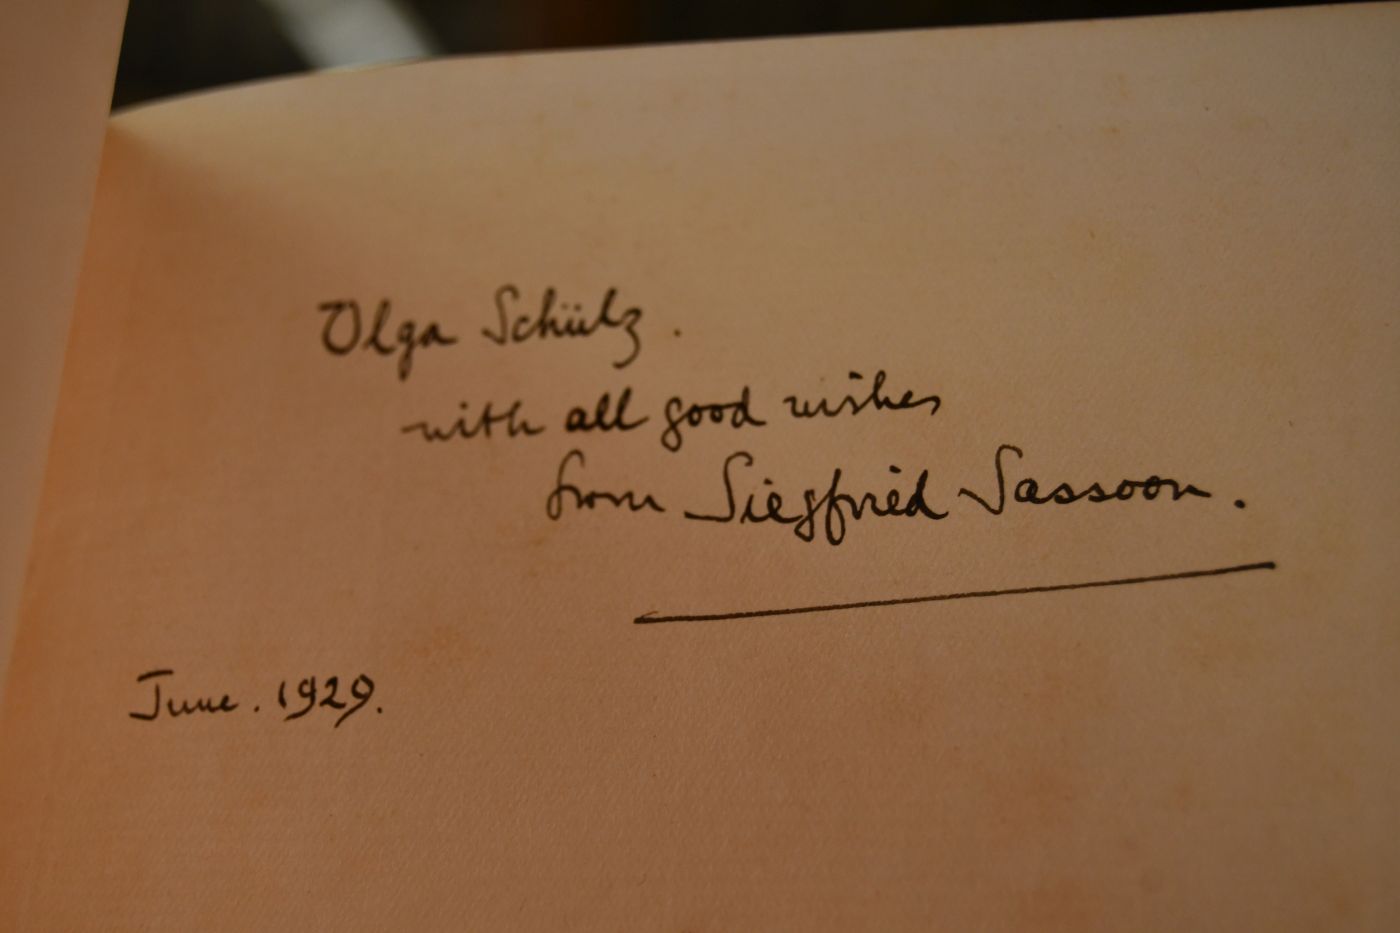 Olga Schülz.
with all good wishes
from Siegfried Sassoon.
June. 1929.